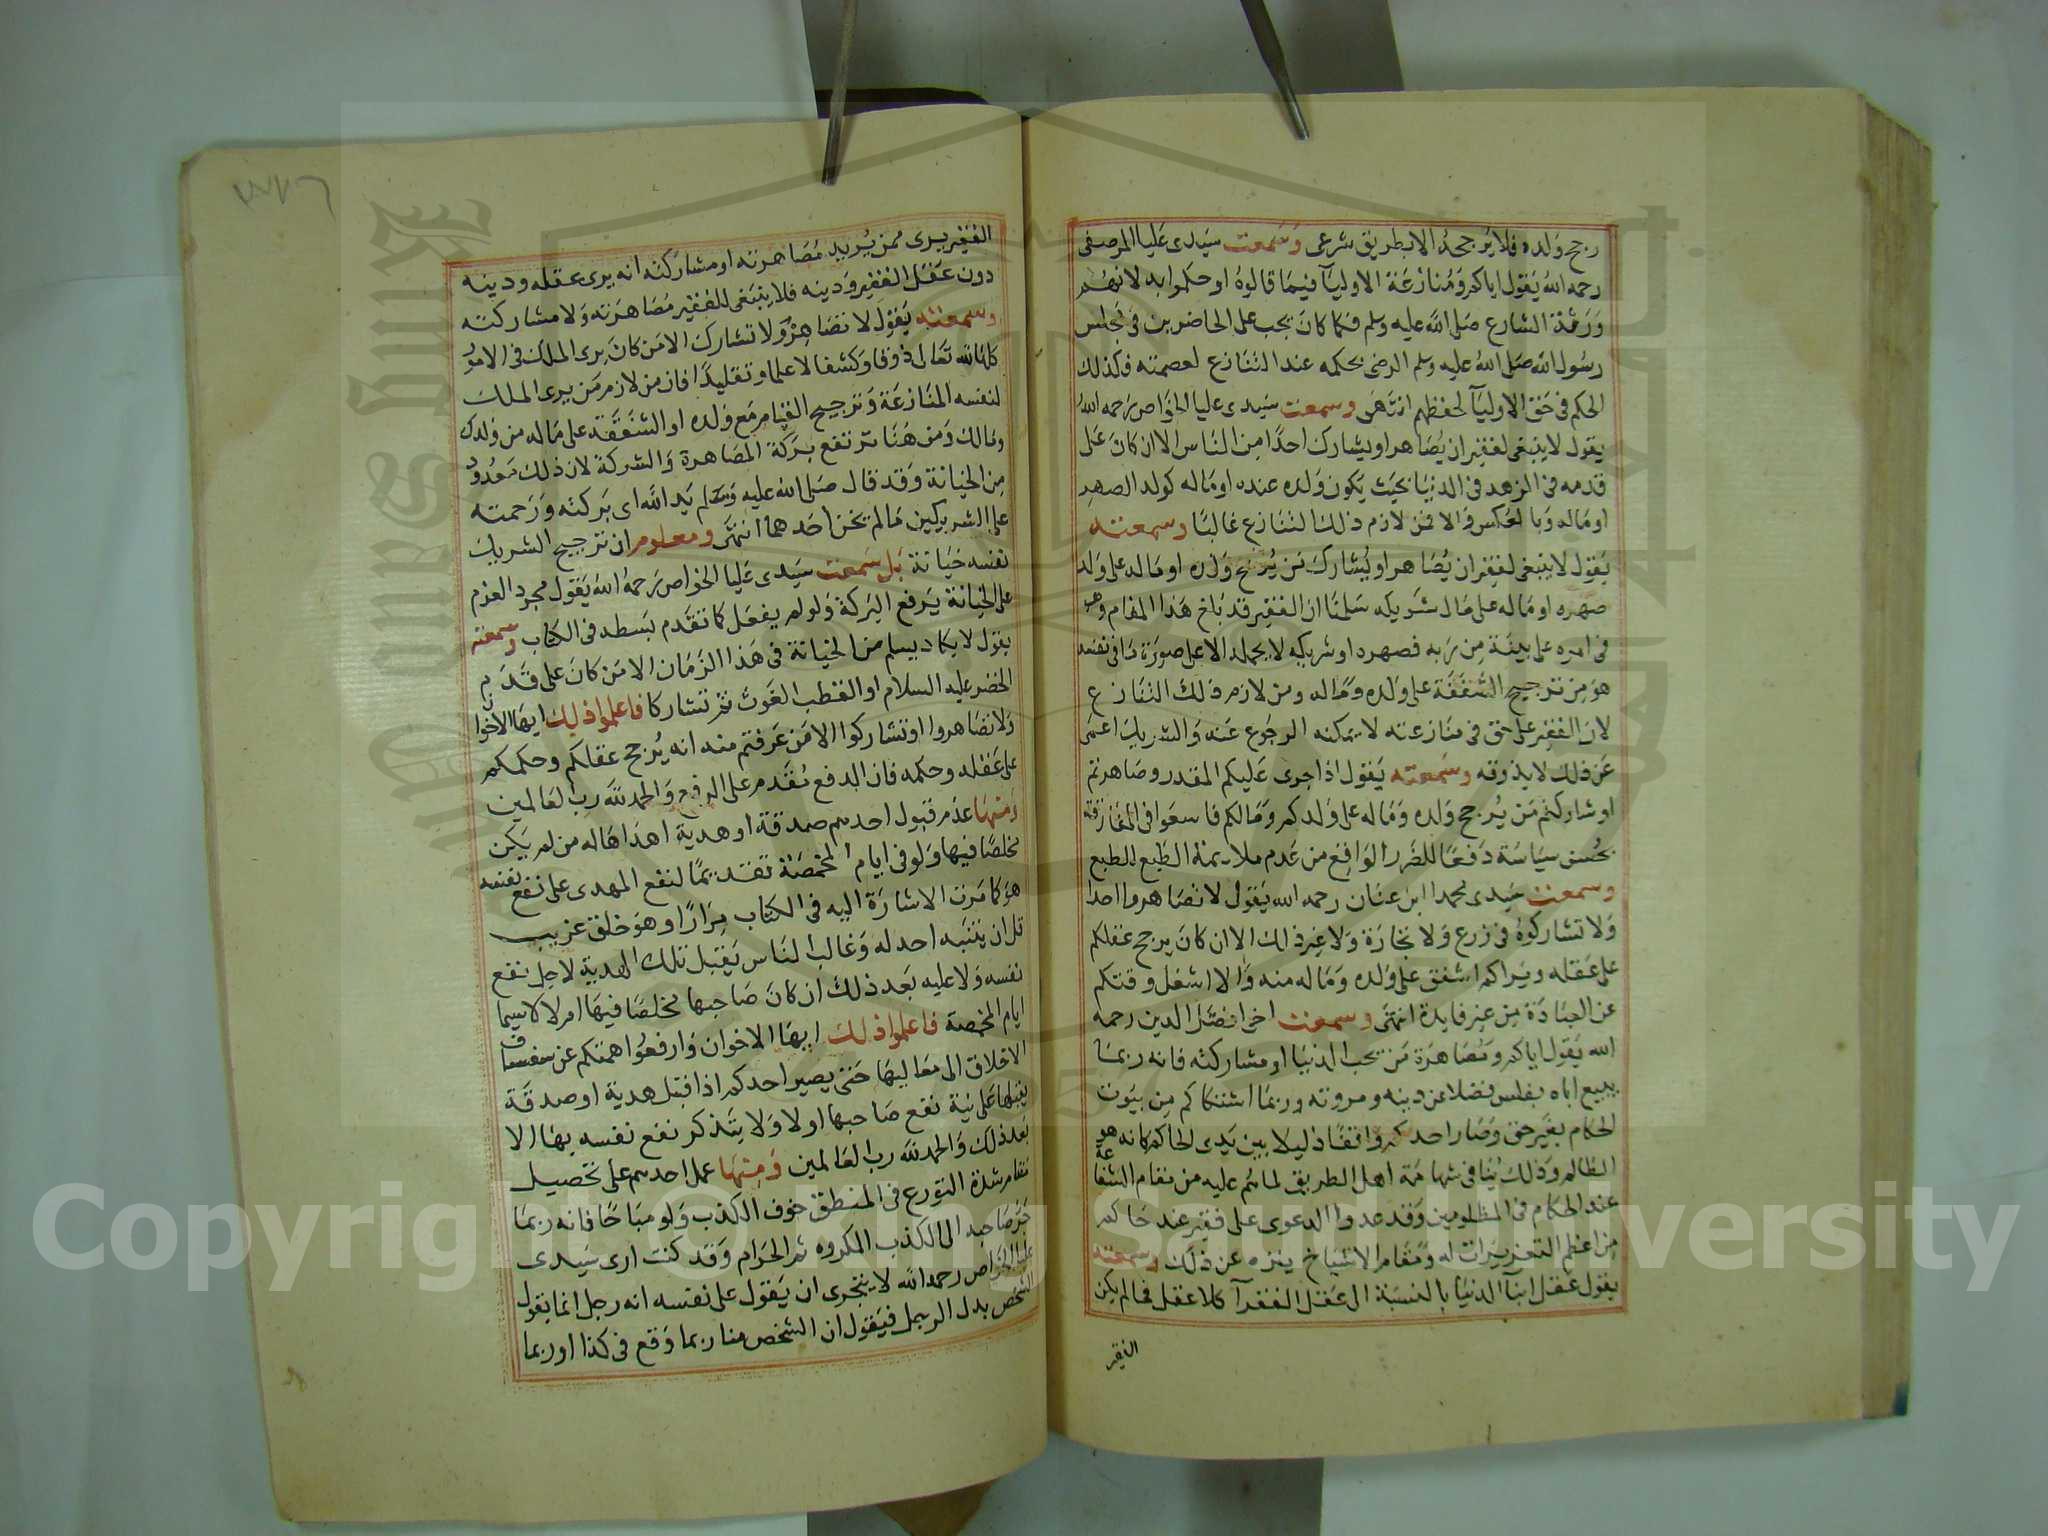 رجح ولده فلا يرجحه الا بطريق شرعى وسمعت سيدى عليا المرصفى
رحمه الله يقول اياكم ومنازعة الاوليآ فيما قالوه او حكموا به لانهم
ورثة الشارع صلى الله عليه وسلم فكما كان يجب على الحاضرين فى مجلس
رسول الله صلى الله عليه وسلم الرضى بحكمه عند التنازع لعصمته فكذلك
الحكم فى حق الاوليآ لحفظهم انتهى وسمعت سيدى عليا الخواص رحمه الله
يقول لا ينبغى لفقير ان يصاهر او يشارك احدا من الناس الا ان كان على
قدمه فى الزهد فى الدنيا بحيث يكون ولده عنده او ماله كولد الصهر
او ماله وبالعكس والا فمن لازم ذلك التنازع غالبا وسمعته
يقول لا ينبغى لفقير ان يصاهر او يشارك من يرجح ولده او ماله على ولد
صهره او ماله على مال شريكه سلمنا ان الفقير قد بلغ هذا المقام وهو
فى امره على بينة من ربه فصهره او شريكه لا يحمله الا على صورة ما فى نفسه
هو من ترجيح الشفقة على ولده وماله ومن لازم ذلك التنازع
لان الفقير على حق فى منازعته لا يمكنه الرجوع عنه والشريك اعمى
عن ذلك لا يذوقه وسمعته يقول اذا جرى عليكم المقدر وصاهرتم
او شاركتم من يرجح ولده وماله على ولدكم ومالكم فاسعوا فى المفارقة
بحسن سياسة دفعا للضرر الواقع من عدم ملايمة الطبع للطبع
وسمعت سيدى محمدا ابن عنان رحمه الله يقول لا تصاهروا احدا
ولا تشاركوه فى زرع ولا تجارة ولا غير ذلك الا ان كان يرجح عقلكم
على عقله ويراكم اشفق على ولده وماله منه والا اشغل وقتكم
عن العبادة من غير فايدة انتهى وسمعت اخى افضل الدين رحمه
الله يقول اياكم ومصاهرة من يحب الدنيا او مشاركته فانه ربما
يبيع اباه بفلس فضلا عن دينه ومروته وربما اشتكاكم من بيوت
الحكام بغير حق وصار احدكم واقفا ذليلا بين يدى الحاكم كانه هو
الظالم وذلك ينافى شهامة اهل الطريق لما هم عليه من مقام الشفاعة
عند الحكام فى المظلومين وقد عدوا الدعوى على فقير عند حاكم
من اعظم التعزيرات له ومقام الاشياخ ينزه عن ذلك وسمعته
يقول عقل ابنآ الدنيا بالنسبة الى عقل الفقرآ كلا عقل فما لم يكن
الفقير
الفقير يرى ممن يريد مصاهرته او مشاركته انه يرى عقله ودينه
دون عقل الفقير ودينه فلا ينبغى للفقير مصاهرته ولا مشاركته
وسمعته يقول لا تصاهر ولا تشارك الا من كان يرى الملك فى الامور
كلها لله تعالى ذوقا وكشفا لا علما وتقليدا فان من لازم من يرى الملك
لنفسه المنازعة وترجيح القيام مع ولده او الشفقة على ماله من ولدك
ومالك ومن هنا ترتفع بركة المصاهرة والشركة لان ذلك معدود
من الخيانة وقد قال صلى الله عليه وسلم يد الله اى بركته ورحمته
على الشريكين ما لم يخن احدهما انتهى ومعلوم ان ترجيح الشريك
نفسه خيانة بل سمعت سيدى عليا الخواص رحمه الله يقول مجرد العزم
على الخيانة يرفع البركة ولو لم يفعل كما تقدم بسطه فى الكتاب وسمعته
يقول لا يكاد يسلم من الخيانة فى هذا الزمان الا من كان على قدم
الخضر عليه السلام او القطب الغوث ثم تشاركا فاعلموا ذلك ايها الاخوان
ولا تصاهروا او تشاركوا الا من عرفتم منه انه يرجح عقلكم وحكمكم
على عقله وحكمه فان الدفع مقدم على الرفع والحمد لله رب العالمين
ومنها عدم قبول احدهم صدقة او هدية اهداها له من لم يكن
مخلصا فيها ولو فى ايام المخمصة تقديما لنفع المهدى على نفع نفسه
هو كما مرت الاشارة اليه فى الكتاب مرارا وهو خلق غريب
قل ان يتنبه احد له وغالب الناس يقبل تلك الهدية لاجل نفع
نفسه ولا عليه بعد ذلك ان كان صاحبها مخلصا فيها ام لا لا سيما
ايام المخمصة فاعلموا ذلك ايها الاخوان وارفعوا همتكم عن سفساف
الاخلاق الى معاليها حتى يصير احدكم اذا قبل هدية او صدقة
يقبلها على نية نفع صاحبها اولا ولا يتذكر نفع نفسه بها الا
بعد ذلك والحمد لله رب العالمين ومنها عمل احدهم على تحصيل
مقام شدة التورع فى المنطق خوف الكذب ولو مباحا فانه ربما
جر صاحبه الى الكذب المكروه ثم الحرام وقد كنت ارى سيدى
على الخواص رحمه الله لا يتجرى ان يقول على نفسه انه رجل انما يقول
الشخص بدل الرجل فيقول ان الشخص منا ربما وقع فى كذا او ربما
Copyright © King Saud University